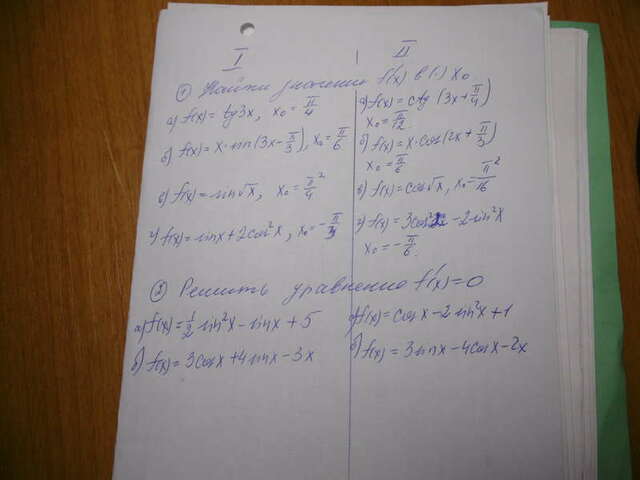 I
II
① Найти значение f'(x) в (·) x₀
а) f(x) = tg3x, x₀ = π/4
б) f(x) = x·sin(3x - π/3), x₀ = π/6
в) f(x) = sin√x, x₀ = π²/4
г) f(x) = sinx + 2cos²x, x₀ = -π/3
а) f(x) = ctg(3x + π/4)
x₀ = π/12.
б) f(x) = x·cos(2x + π/3)
x₀ = π/6
в) f(x) = cos√x, x₀ = π²/16
г) f(x) = 3cos² - 2sin²x
x₀ = -π/6.
② Решить уравнение f'(x)=0
а) f(x) = 1/2 sin²x - sinx + 5
б) f(x) = 3cosx + 4sinx - 3x
а) f(x) = cosx - 2sin²x + 1
б) f(x) = 3sinx - 4cosx - 2x